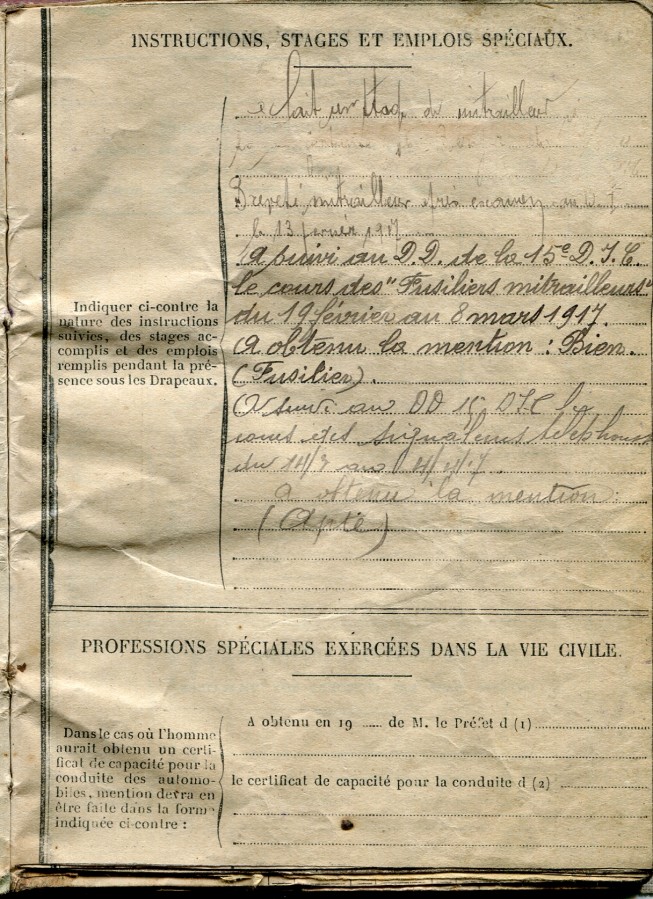 INSTRUCTIONS, STAGES ET EMPLOIS SPÉCIAUX.
fait un stage de mitrailleur
Breveté mitrailleur après examen au D.
le 13 février 1917
Indiquer ci-contre la
nature des instructions
suivies, des stages ac-
complis et des emplois
remplis pendant la pré-
sence sous les Drapeaux.
A suivi au D.D. de la 15e D.I.C.
le cours des "Fusiliers mitrailleurs"
du 19 février au 8 mars 1917.
A obtenu la mention : Bien.
(Fusilier).
A suivi au DD 15 DIC le
cours des signaleurs téléphonis
du 14/3 au
a obtenu la mention :
(Apte)
PROFESSIONS SPÉCIALES EXERCÉES DANS LA VIE CIVILE.
Dans le cas où l'homme
aurait obtenu un certi-
ficat de capacité pour la
conduite des automo-
biles, mention devra en
être faite dans la forme
indiquée ci-contre :
A obtenu en 19 ...... de M. le Préfet d (1)
le certificat de capacité pour la conduite d (2)